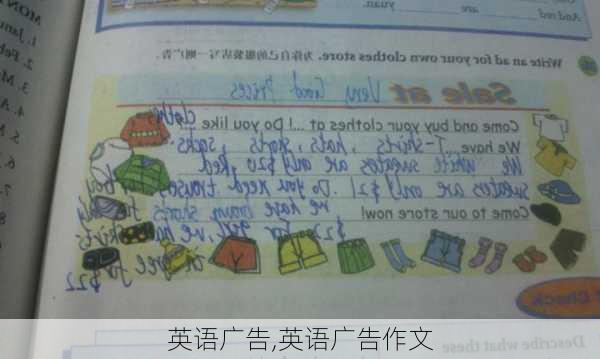 MON
1. Janu
2. Feb
3. M
4. A
And red and
are yuan.
Write an ad for your own clothes store. 为你自己的服装店写一则广告。
Sale at Very Good Prices
Come and buy your clothes at ...! Do you like clothes
We have...T-shirts, hats, shorts, sacks.
We white sweaters are only $20, Red
sweaters are only $21. Do you need trouses
we have brown shorts for boy
Come to our store now! $22 for girl, we ha
for $22
Check
Describe what these
英语广告,英语广告作文